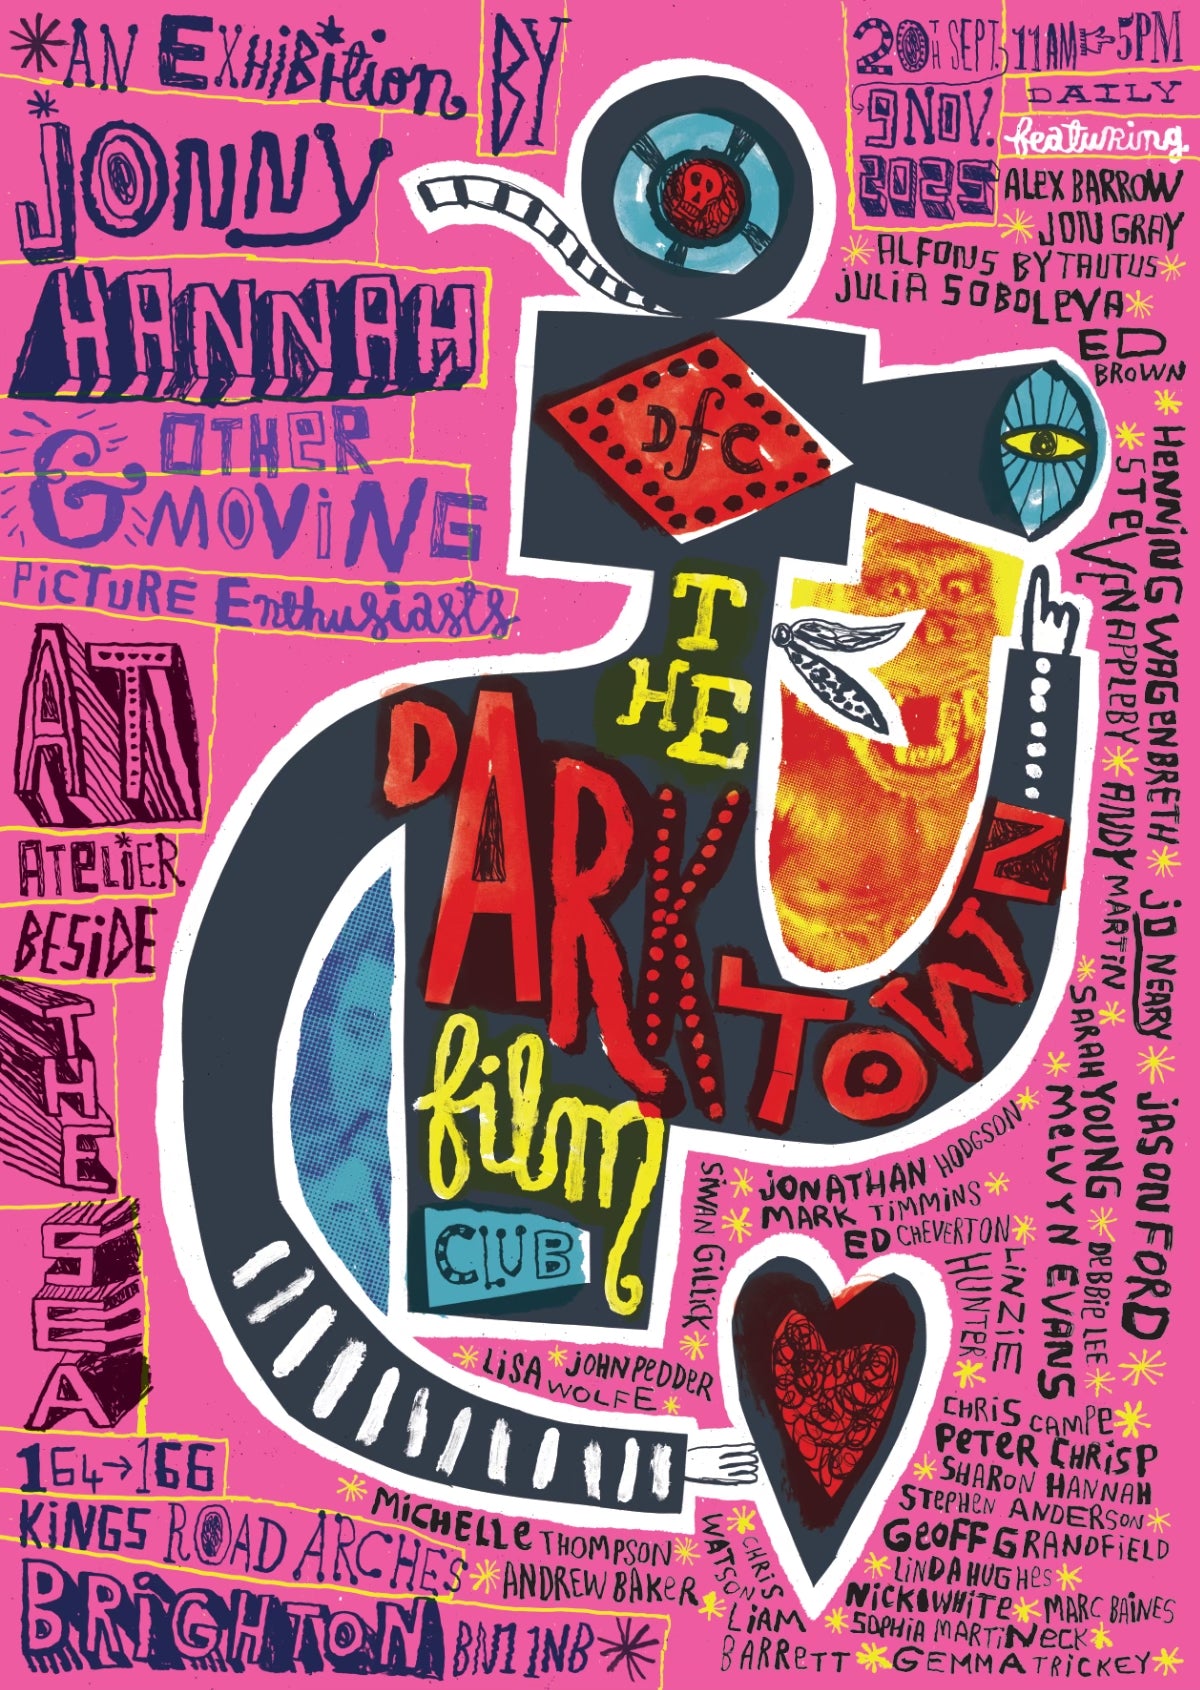 AN EXHIBITION BY
JONNY
HANNAH
& OTHER
MOVING
PICTURE Enthusiasts
AT
ATELIER
BESIDE
THE
SEA
164→166
KINGS ROAD ARCHES
BRIGHTON BN1 1NB
20TH SEPT.
9 NOV.
2025
11AM 5PM
DAILY
featuring
ALEX BARROW
JON GRAY
ALFONS BYTAUTUS
JULIA SOBOLEVA
ED
BROWN
HENNING WAGENBRETH
STEVEN APPLEBY
ANDY MARTIN
JO NEARY
SARAH YOUNG
JASON FORD
MELVYN EVANS
DEBBIE LEE
DfC
THE
DARKTOWN
film
CLUB
JONATHAN HODGSON
MARK TIMMINS
ED CHEVERTON
SIWAN GILLICK
LINZIE
HUNTER
LISA WOLFE
JOHN PEDDER
CHRIS CAMPE
PETER CHRISP
SHARON HANNAH
STEPHEN ANDERSON
GEOFF GRANDFIELD
LINDA HUGHES
NICK WHITE
MARC BAINES
SOPHIA MARTINECK
GEMMA TRICKEY
MICHELLE THOMPSON
ANDREW BAKER
CHRIS
WATSON
LIAM
BARRETT